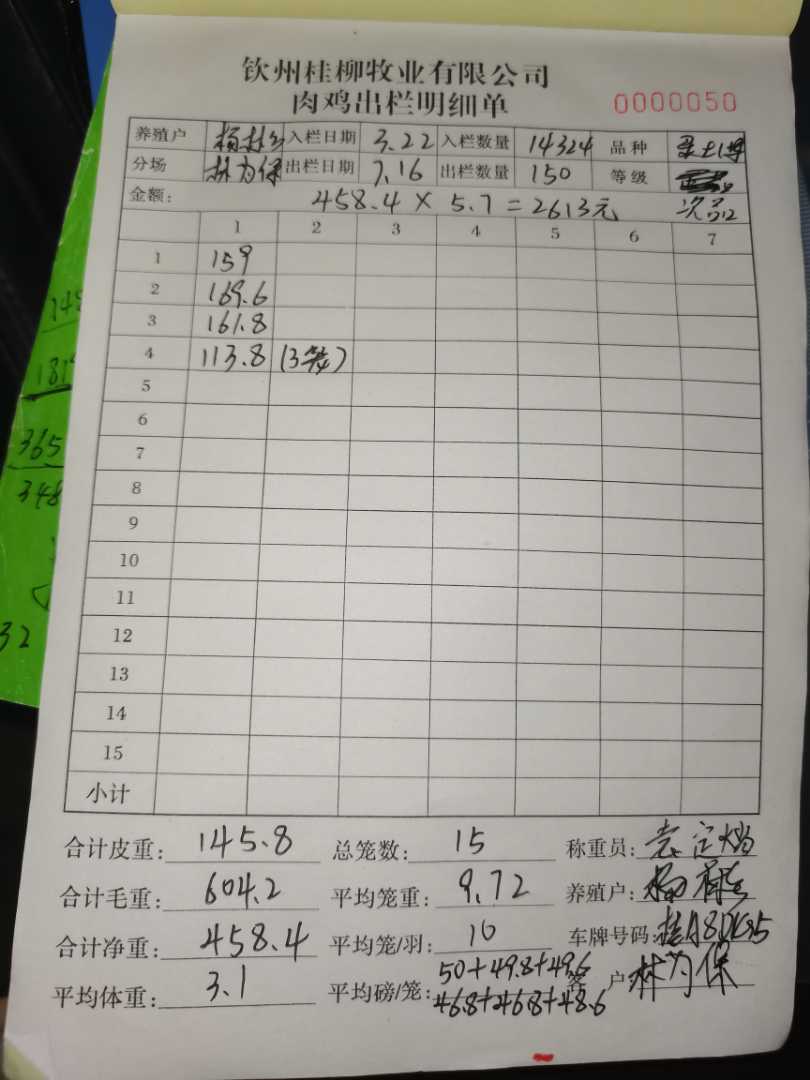 钦州桂柳牧业有限公司
肉鸡出栏明细单 0000050
养殖户 入栏日期 3.22 入栏数量 14324 品种
分场 林为保 出栏日期 7.16 出栏数量 150 等级
金额: 458.4 × 5.7 = 2613元 次品
1 2 3 4 5 6 7
1 159
2 169.6
3 161.8
4 113.8 (3笼)
5
6
7
8
9
10
11
12
13
14
15
小计
合计皮重: 145.8 总笼数: 15 称重员:
合计毛重: 604.2 平均笼重: 9.72 养殖户:
合计净重: 458.4 平均笼/羽: 10 车牌号码:
平均体重: 3.1 平均磅/笼: 50+49.8+49.6 客户 林为保
46.8+46.8+48.6
148
181
365
348
32